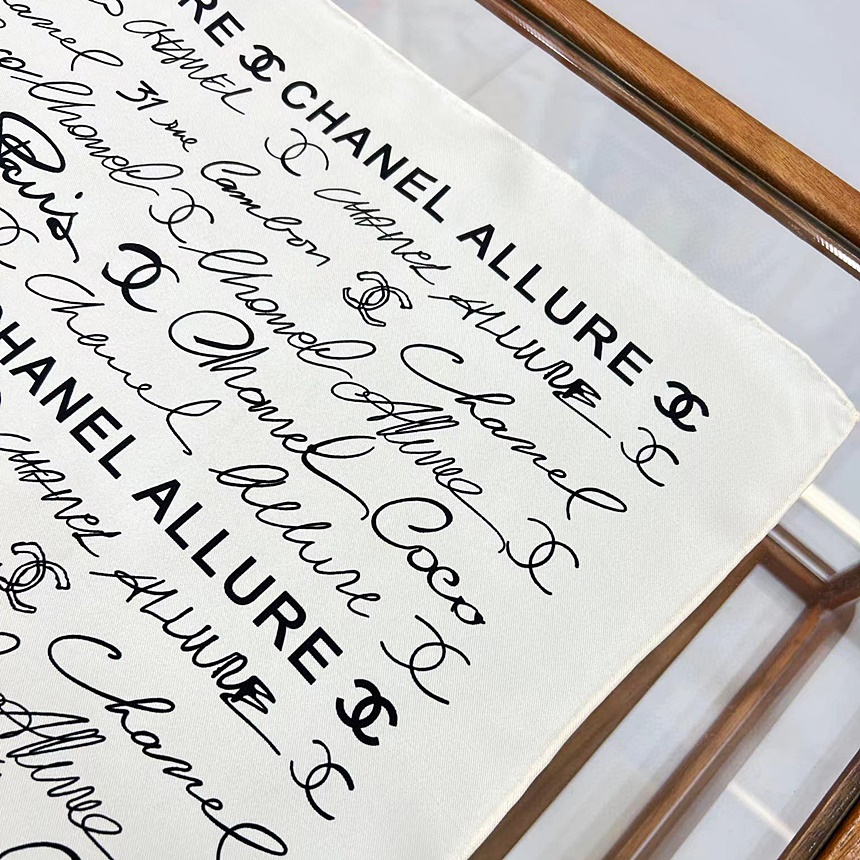 RE CHANEL ALLURE
CHANEL CHANEL ALLURE
Chanel 31 rue Cambon Chanel
Coco Chanel Chanel Allure
Paris Chanel Coco
Chanel allure
CHANEL ALLURE
CHANEL ALLURE
Chanel
Allure